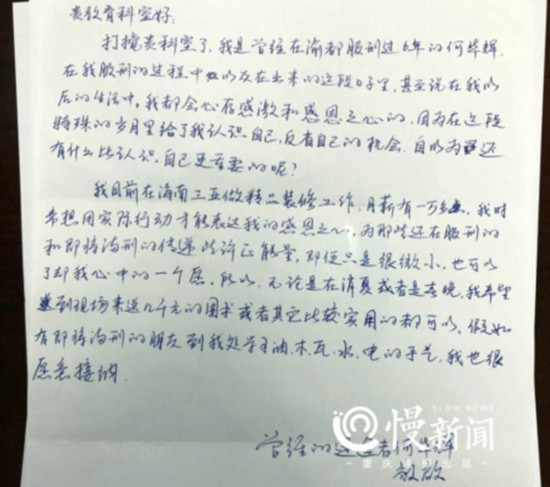 贵教育科室好:
打搅贵科室了，我是曾经在渝都服刑过6年的何华辉.
在我服刑的过程中以及在出来的这段日子里，甚至说在我以
后的生活中，我都会心存感激和感恩之心的，因为在这段
特殊的岁月里给了我认识自己，反省自己的机会，自以为还
有什么比认识自己更重要的呢?
我目前在海南三亚做精品装修工作，月薪有一万多，我时
常想用实际行动才能表达我的感恩之心，为那些还在服刑的
和即将满刑的传递些许正能量，即使只是很微小，也可以
了却我心中的一个愿，所以，无论是在消夏或者是春晚，我希望
到现场来送几千元的图书或者其它比较实用的都可以，假如
有即将满刑的朋友到我处学习油.木.瓦.水.电的手艺，我也很
愿意接纳.
曾经的者何华辉
敬启
SLOW NEWS
慢新闻
重庆出品